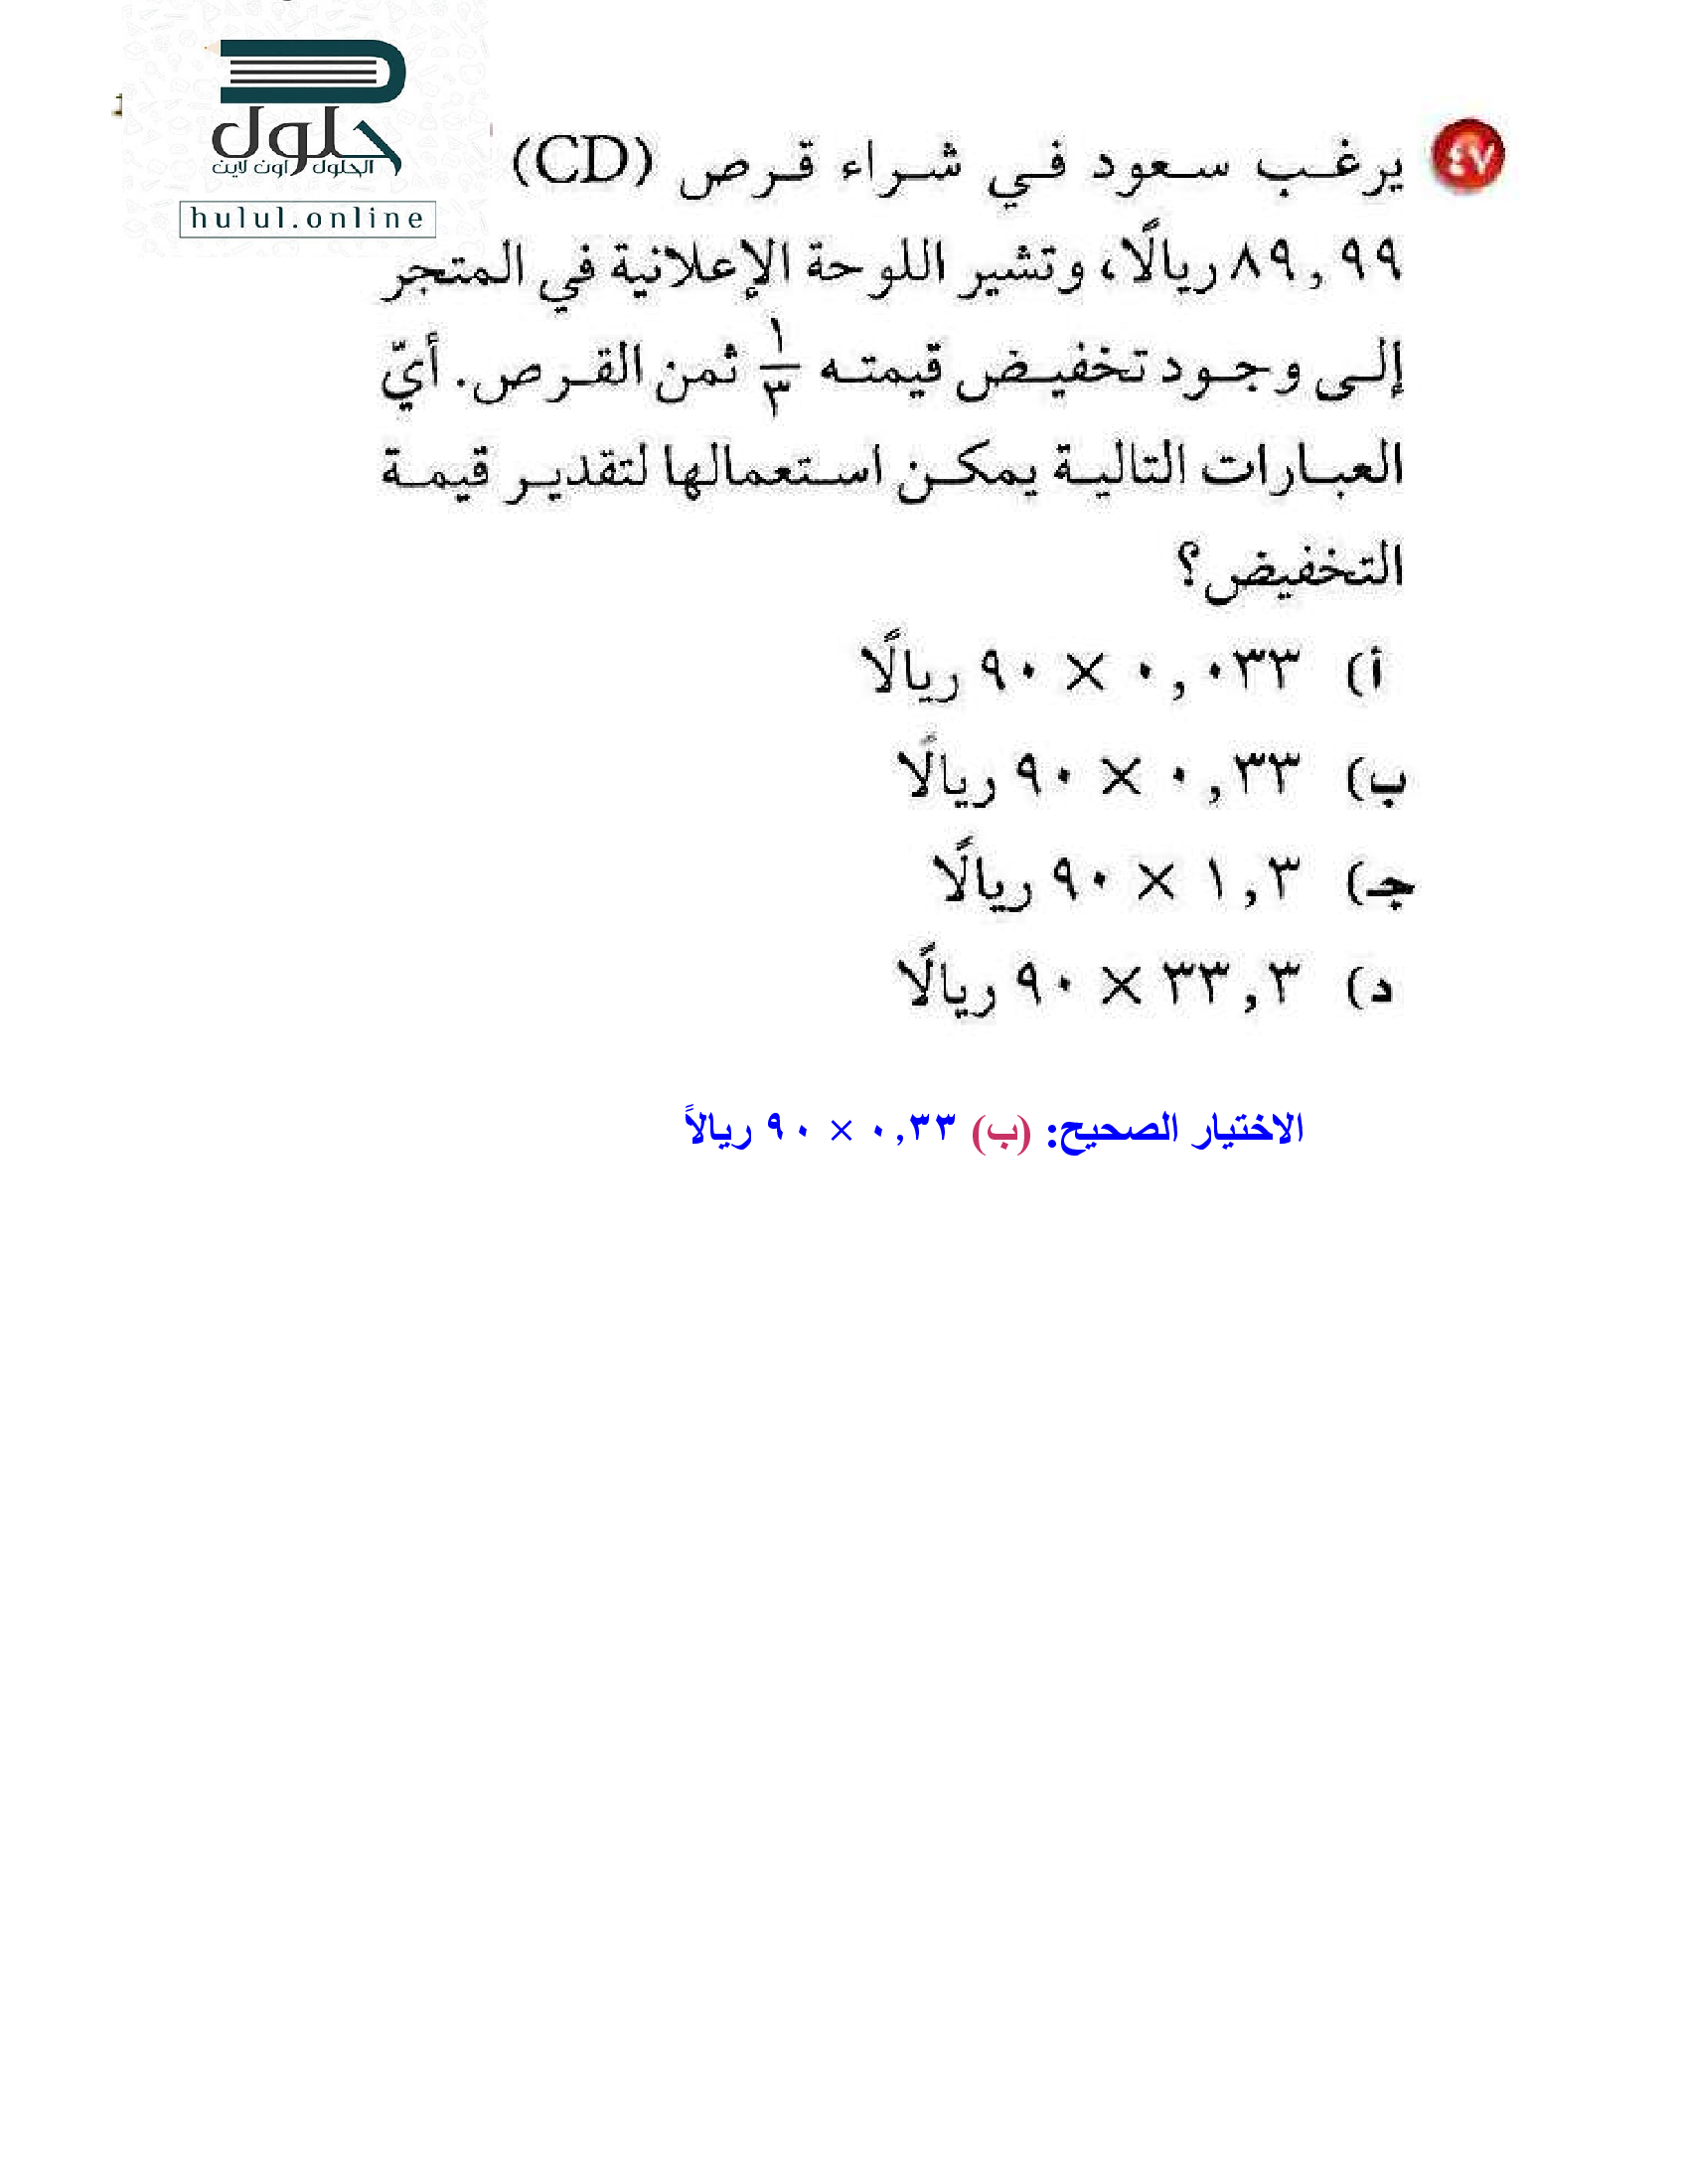 حلول
الحلول اون لاين
hulul.online
٤٧ يرغب سعود في شراء قرص (CD)
٨٩,٩٩ ريالًا، وتشير اللوحة الإعلانية في المتجر
إلى وجود تخفيض قيمته ١/٣ ثمن القرص. أيّ
العبارات التالية يمكن استعمالها لتقدير قيمة
التخفيض؟
أ) ٠,٠٣٣ × ٩٠ ريالًا
ب) ٠,٣٣ × ٩٠ ريالًا
جـ) ١,٣ × ٩٠ ريالًا
د) ٣٣,٣ × ٩٠ ريالًا
الاختيار الصحيح: (ب) ٠,٣٣ × ٩٠ ريالاً